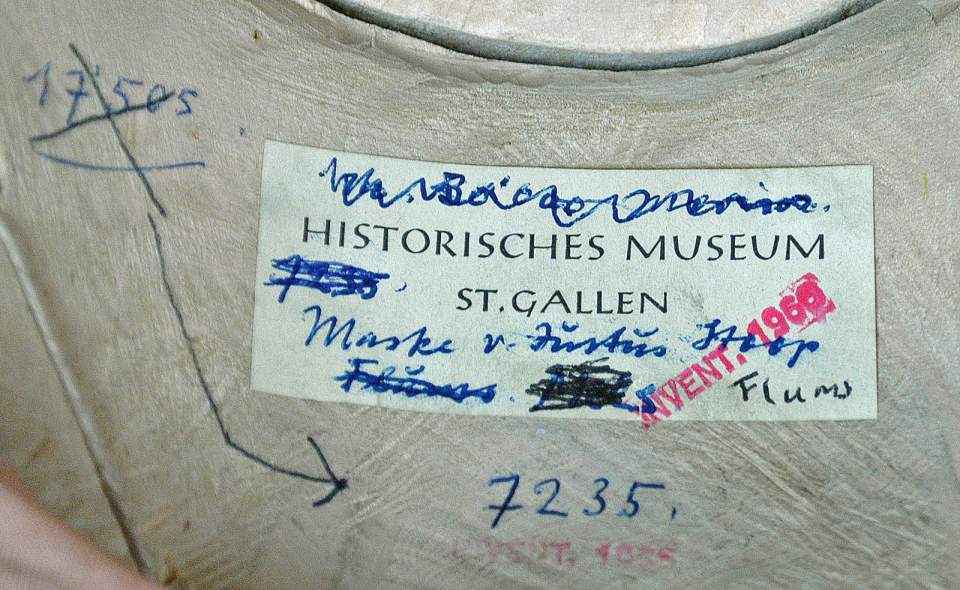 17505
HISTORISCHES MUSEUM
ST. GALLEN
Maske v. Justus Stoop
INVENT. 1960
Flums
Flums
7235.
INVENT.